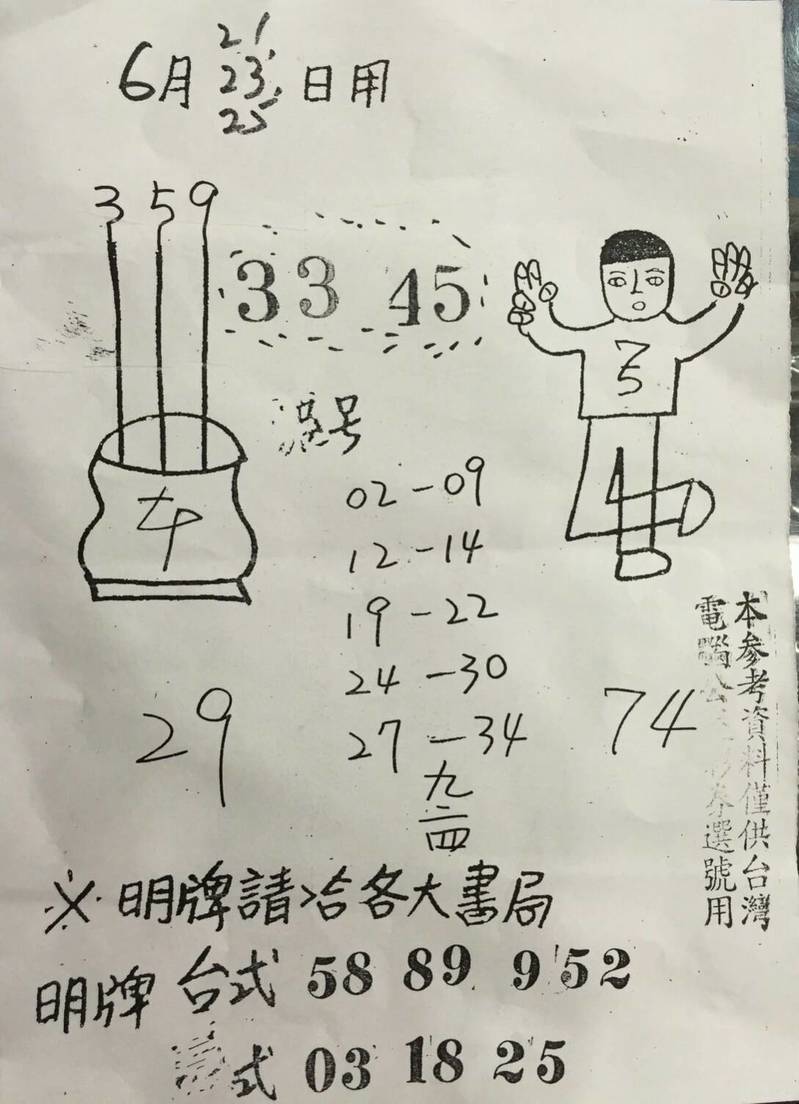 21
6月 23 日用
25
3 5 9
33 45
7
5
号
02-09
12-14
19-22
24-30
27-34
29
74
九
二
四
本参考資料僅供台灣
電腦公 彩券選號用
※明牌請洽各大書局
明牌 台式 58 89 952
式 03 18 25